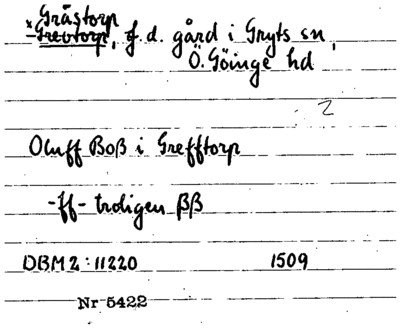 ×Gråstorp
-Grevtorp, f.d. gård i Gryts sn,
Ö. Göinge hd
2
Oluff Boß i Grefftorp
-ff- troligen ßß
DBM 2:11220 1509
Nr 5422